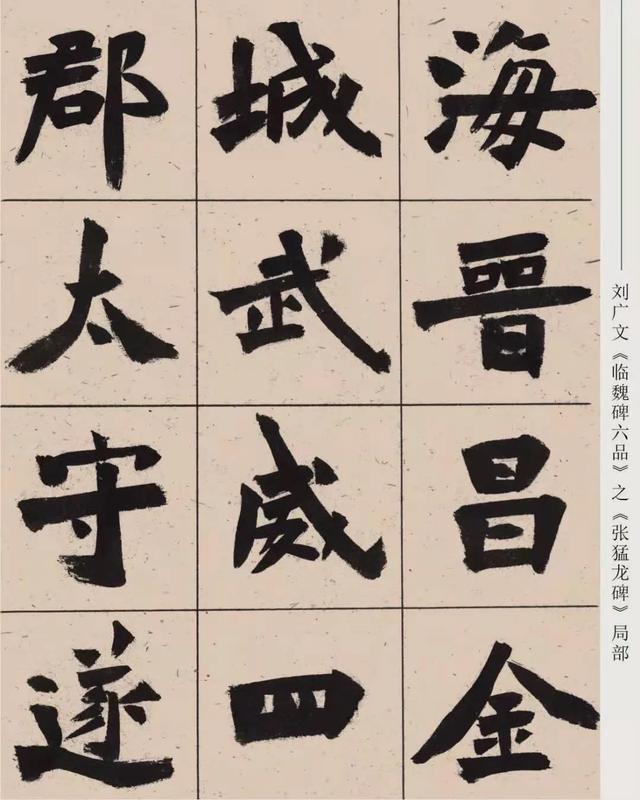 海晉昌金
城武威四
郡太守遂
刘广文《临魏碑六品》之《张猛龙碑》局部